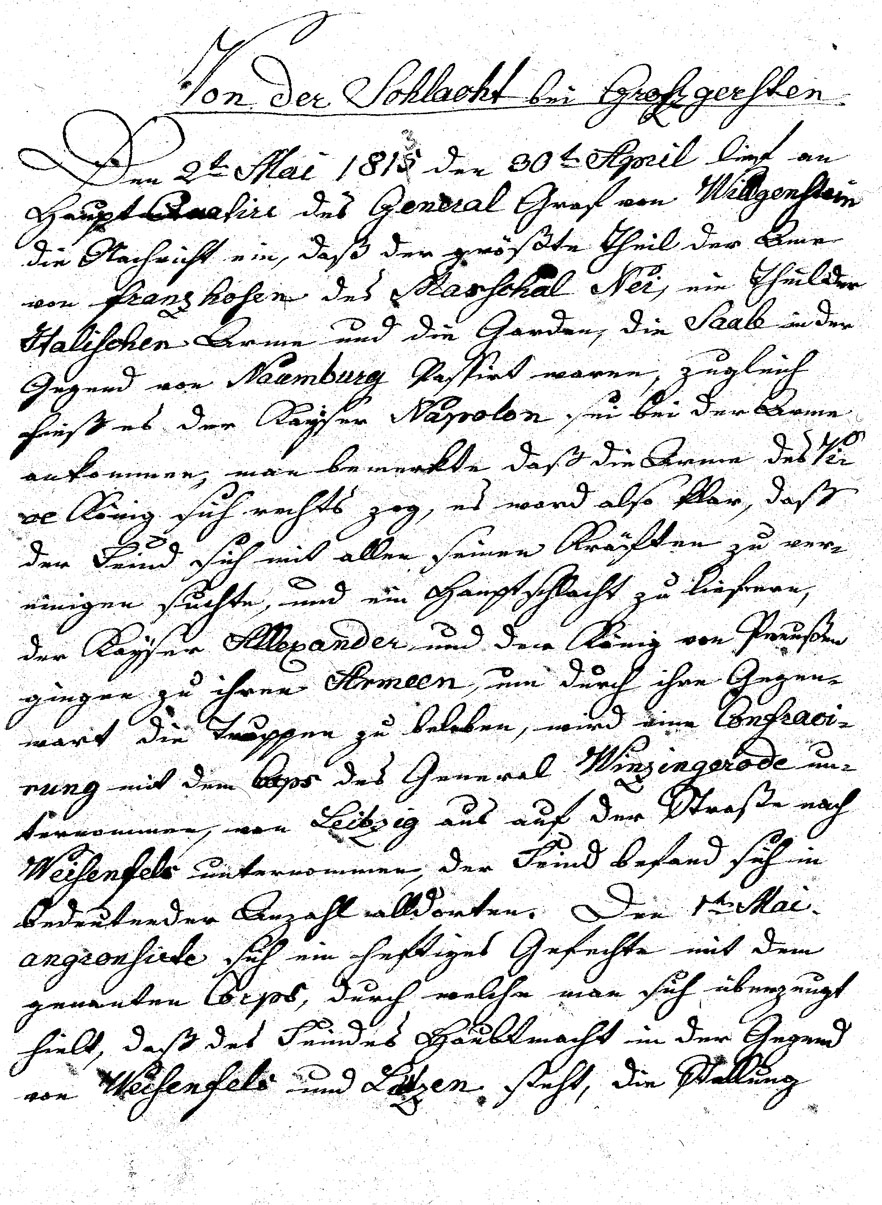 Von der Schlacht bei Großgerschen
Den 2t Mai 1813 den 30t April lief an
Haupt des General Graf von Wittgenstein
die Nachricht ein, daß der größte Theil der Arme
von franzhosen des Marschal Nei, ein Theil der
Italischen Arme und die Garden, die Saale in der
Gegend von Naumburg Passirt waren, zugleich
hieß es der Kayser Napolon sei bei der Arme
ankommen, man bemerkte daß die Arme des Vi-
ce König sich rechts zog, es ward also klar, daß
der Feind sich mit allen seinen Kräfften zu ver-
einigen suchte, und ein Hauptschlacht zu liefern,
der Kayser Allexander und der König von Preußen
gingen zu ihren Armeen, um durch ihre Gegen-
wart die Truppen zu beleben, wird eine
rung mit dem Corps des General Winzingerode un-
ternommen, von Leibzig aus auf der Straße nach
Weisenfels unternommen, der Feind befand sich in
bedeutender Anzahl alldorten. Den 1ten Mai
sich ein heftiges Gefechte mit dem
genanten Corps, durch welche man sich überzeugt
hielt, daß des Feindes Haubtmacht in der Gegend
von Weisenfels und Lützen steht, die Stellung